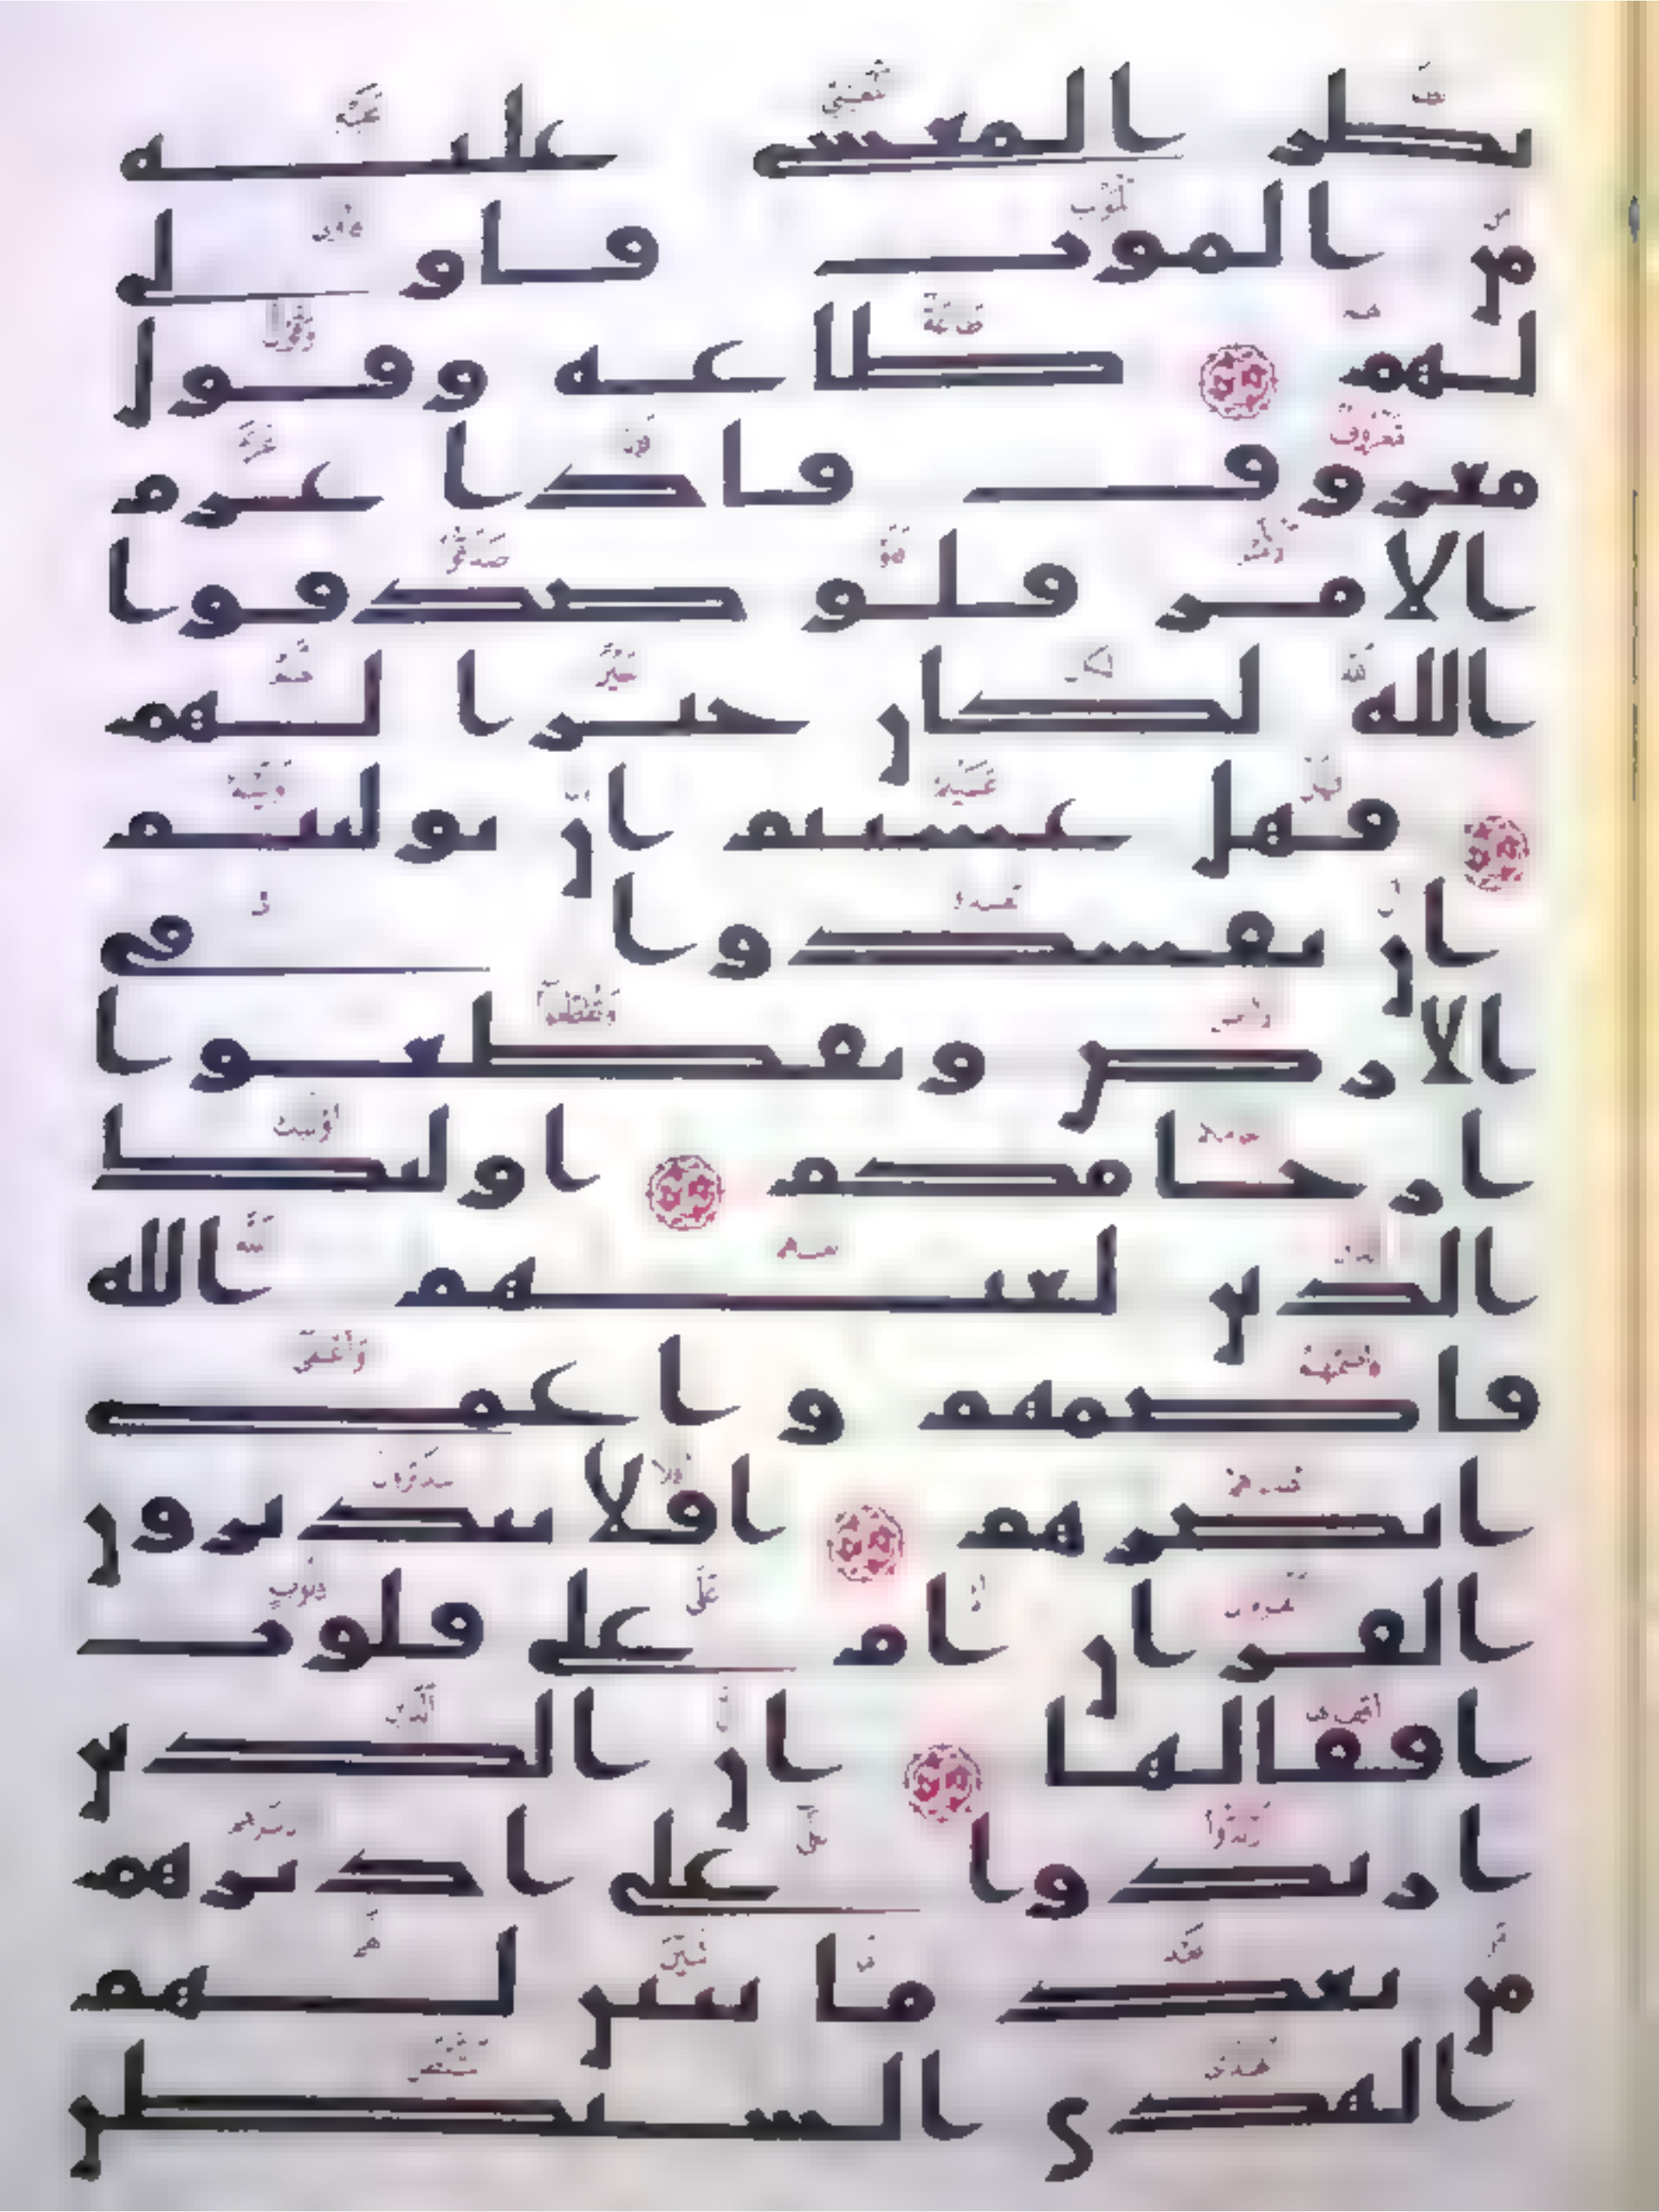 نظر المغشى عليه
من الموت فاولى
لهم طاعه وقول
معروف فاذا عزم
الامر فلو صدقوا
الله لكان خيرا لهم
فهل عسيتم ان توليتم
ان تفسدوا في
الارض وتقطعوا
ارحامكم اولئك
الذين لعنهم الله
فاصمهم واعمى
ابصرهم افلا يتدبرون
القران ام على قلوب
اقفالها ان الذين
ارتدوا على ادبرهم
من بعد ما تبين لهم
الهدى الشيطن